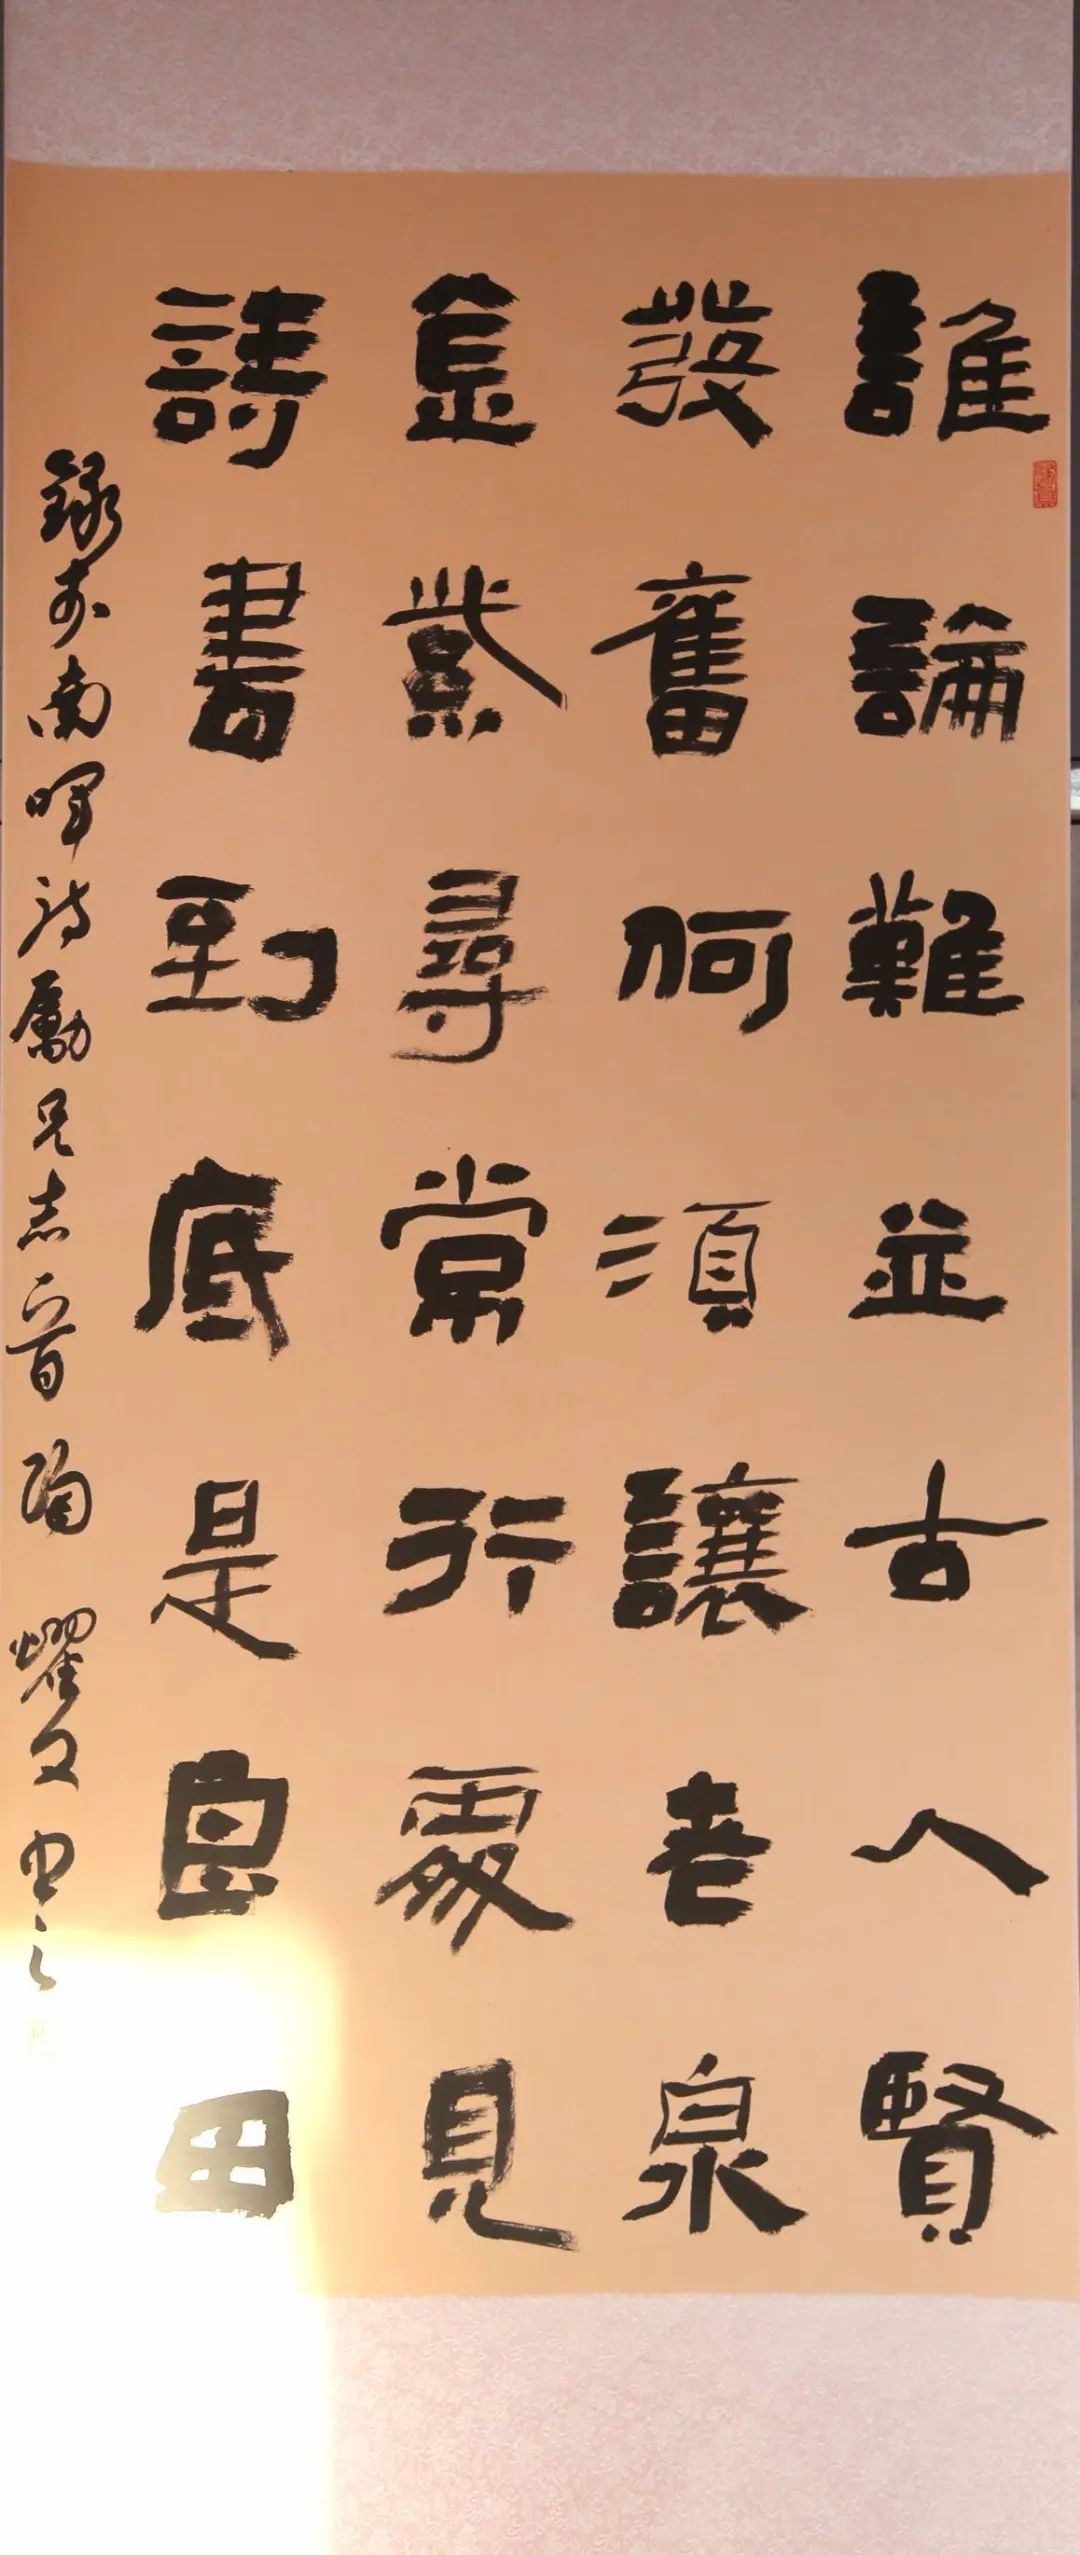 誰論難並古人賢
發奮何須讓老泉
金紫尋常行處見
詩書到底是良田
錄李南暉詩勵兄志一首 陶 耀文書